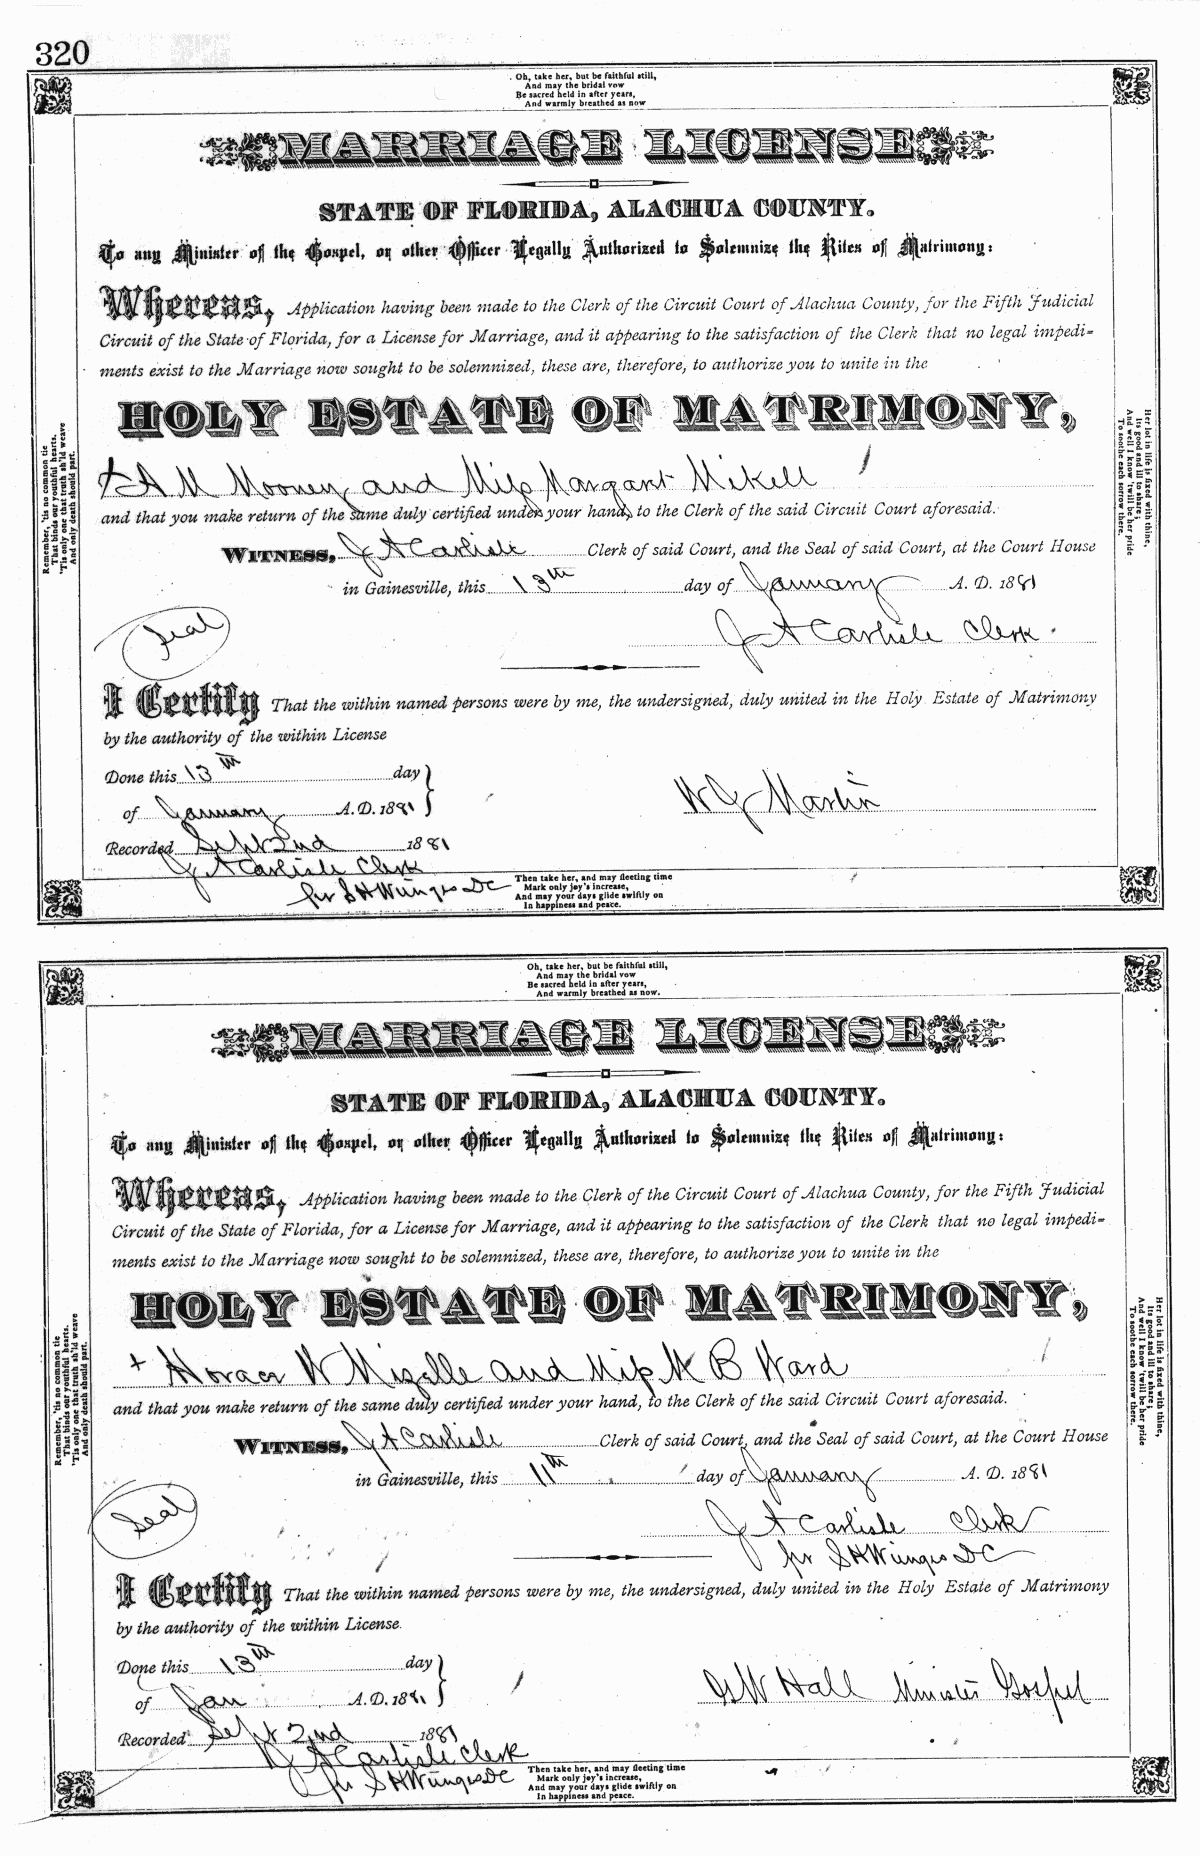 320
Oh, take her, but be faithful still,
And may the bridal vow
Be sacred held in after years,
And warmly breathed as now
MARRIAGE LICENSE
STATE OF FLORIDA, ALACHUA COUNTY.
To any Minister of the Gospel, or other Officer Legally Authorized to Solemnize the Rites of Matrimony:
Whereas, Application having been made to the Clerk of the Circuit Court of Alachua County, for the Fifth Judicial
Circuit of the State of Florida, for a License for Marriage, and it appearing to the satisfaction of the Clerk that no legal impedi-
ments exist to the Marriage now sought to be solemnized, these are, therefore, to authorize you to unite in the
HOLY ESTATE OF MATRIMONY,
+ A M Mooney and Miss Margaret Mikell
and that you make return of the same duly certified under your hand, to the Clerk of the said Circuit Court aforesaid.
WITNESS, J A Carlisle Clerk of said Court, and the Seal of said Court, at the Court House
in Gainesville, this 13th day of January A. D. 1881
Seal
J A Carlisle Clerk
I Certify That the within named persons were by me, the undersigned, duly united in the Holy Estate of Matrimony
by the authority of the within License
Done this 13th day
of January A. D. 1881
W J Martin
Recorded Sept 2nd 1881
J A Carlisle Clerk
pr S H DC
Then take her, and may fleeting time
Mark only joy's increase,
And may your days glide swiftly on
In happiness and peace.
Remember, 'tis no common tie
That binds our youthful hearts.
'Tis only one that truth sh'ld weave
And only death should part.
Her lot in life is fixed with thine,
Its good and ill to share;
And well I know 'twill be her pride
To soothe each sorrow there.
Oh, take her, but be faithful still,
And may the bridal vow
Be sacred held in after years,
And warmly breathed as now.
MARRIAGE LICENSE
STATE OF FLORIDA, ALACHUA COUNTY.
To any Minister of the Gospel, or other Officer Legally Authorized to Solemnize the Rites of Matrimony:
Whereas, Application having been made to the Clerk of the Circuit Court of Alachua County, for the Fifth Judicial
Circuit of the State of Florida, for a License for Marriage, and it appearing to the satisfaction of the Clerk that no legal impedi-
ments exist to the Marriage now sought to be solemnized, these are, therefore, to authorize you to unite in the
HOLY ESTATE OF MATRIMONY,
+ Horace W Mizelle and Miss M B Ward
and that you make return of the same duly certified under your hand, to the Clerk of the said Circuit Court aforesaid.
WITNESS, J A Carlisle Clerk of said Court, and the Seal of said Court, at the Court House
in Gainesville, this 11th day of January A. D. 1881
Seal
J A Carlisle Clerk
pr S H DC
I Certify That the within named persons were by me, the undersigned, duly united in the Holy Estate of Matrimony
by the authority of the within License.
Done this 13th day
of Jan A. D. 1881
G W Hall Minister Gospel
Recorded Sept 2nd 1881
J A Carlisle Clerk
pr S H DC
Then take her, and may fleeting time
Mark only joy's increase,
And may your days glide swiftly on
In happiness and peace.
Remember, 'tis no common tie
That binds our youthful hearts.
'Tis only one that truth sh'ld weave
And only death should part.
Her lot in life is fixed with thine,
Its good and ill to share;
And well I know 'twill be her pride
To soothe each sorrow there.